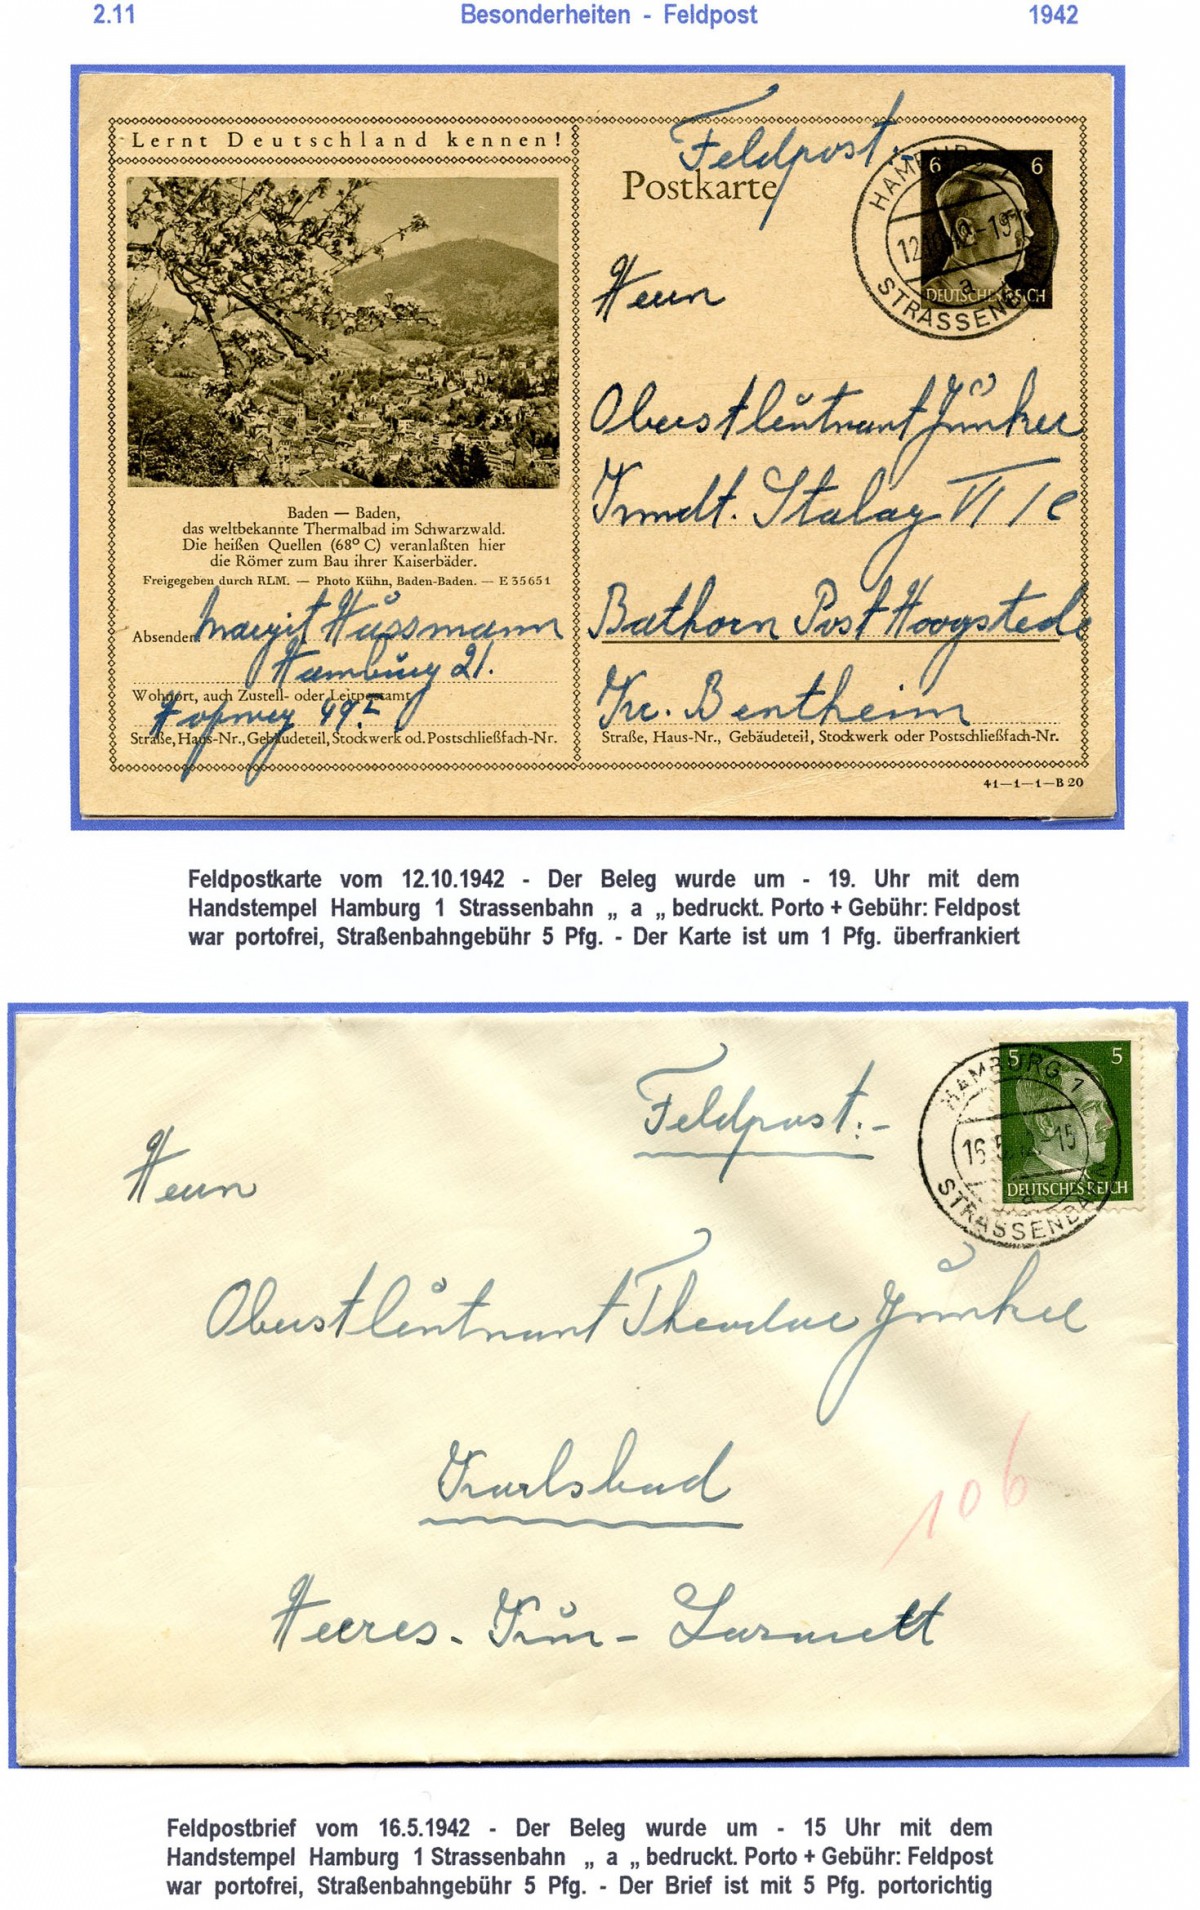 2.11 Besonderheiten - Feldpost 1942
Lernt Deutschland kennen!
Feldpost.-
Postkarte
6 6
HAMBURG 1
12.10.42-19
a
STRASSENBAHN
DEUTSCHES REICH
Herrn
Oberstleutnant Junker
Kmdt. Stalag VI/C
Bathorn Post Hoogstede
Kr. Bentheim
Straße, Haus-Nr., Gebäudeteil, Stockwerk oder Postschließfach-Nr.
41—1—1—B 20
Baden — Baden,
das weltbekannte Thermalbad im Schwarzwald.
Die heißen Quellen (68° C) veranlaßten hier
die Römer zum Bau ihrer Kaiserbäder.
Freigegeben durch RLM. — Photo Kühn, Baden-Baden. — E 35651
Absender: Margit Hussmann
Hamburg 21.
Wohnort, auch Zustell- oder Leitpostamt
Hofweg 49 I
Straße, Haus-Nr., Gebäudeteil, Stockwerk od. Postschließfach-Nr.
Feldpostkarte vom 12.10.1942 - Der Beleg wurde um - 19. Uhr mit dem
Handstempel Hamburg 1 Strassenbahn „ a „ bedruckt. Porto + Gebühr: Feldpost
war portofrei, Straßenbahngebühr 5 Pfg. - Der Karte ist um 1 Pfg. überfrankiert
Feldpost.-
5 5
HAMBURG 1
16.5.42-15
a
STRASSENBAHN
DEUTSCHES REICH
Herrn
Oberstleutnant Theodor Junker
Karlsbad
106
Heeres-Kur-Lazarett
Feldpostbrief vom 16.5.1942 - Der Beleg wurde um - 15 Uhr mit dem
Handstempel Hamburg 1 Strassenbahn „ a „ bedruckt. Porto + Gebühr: Feldpost
war portofrei, Straßenbahngebühr 5 Pfg. - Der Brief ist mit 5 Pfg. portorichtig